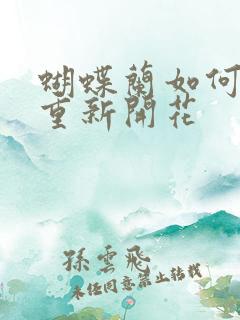 蝴蝶蘭如何
重新開花
孫雲飛
未经同意禁止转载